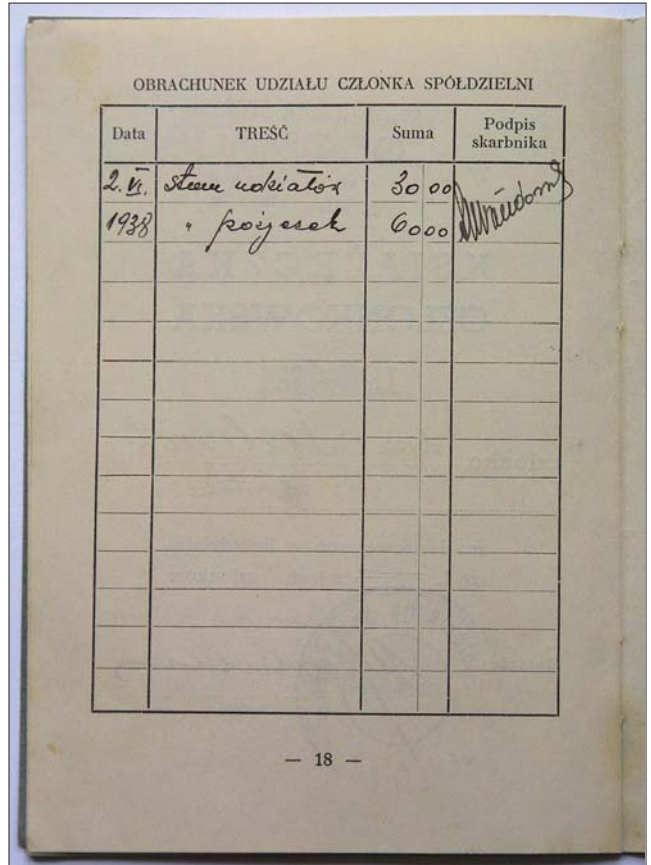 OBRACHUNEK UDZIAŁU CZŁONKA SPÓŁDZIELNI
Data TREŚĆ Suma Podpis skarbnika
2.VI. stan udziałów 30 00
1938 " pożyczek 60 00
— 18 —